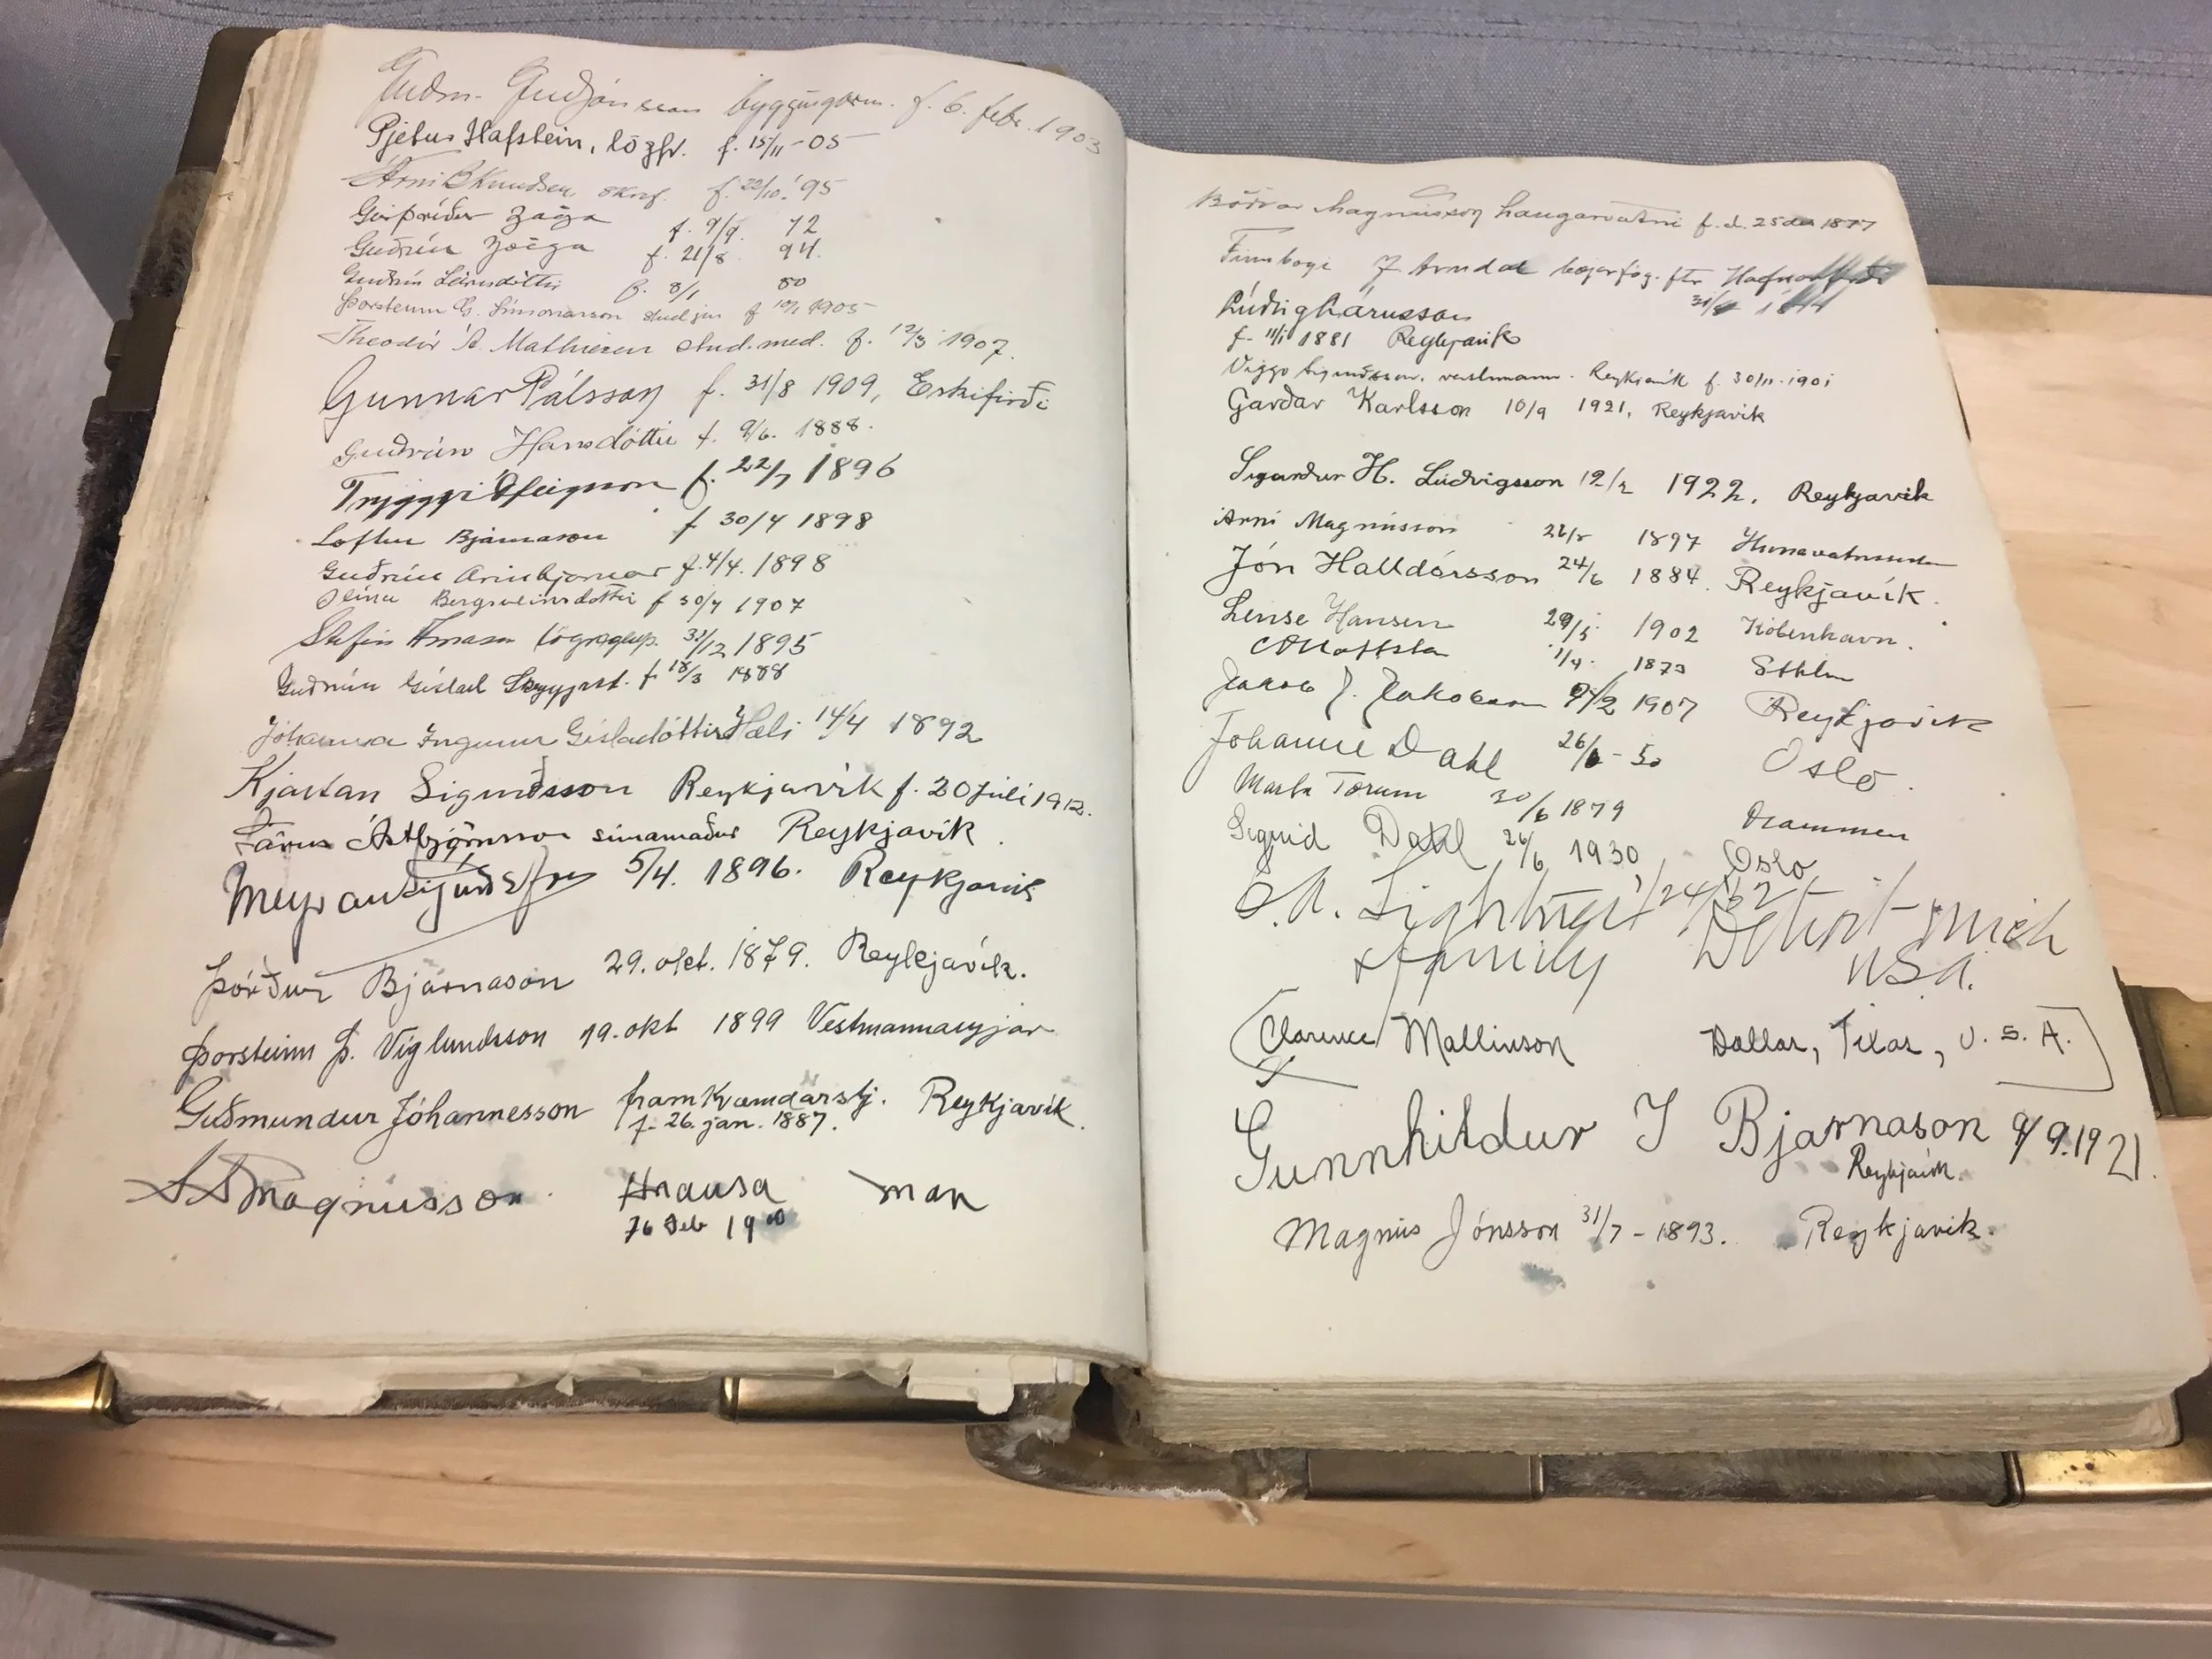 Guðm. Guðjónsson byggingarm. f. 6. febr. 1903
Pjetur Hafstein, lögfr. f. 15/11 - 05
Árni B Knudsen skrif. f. 22/10 '95
Geirþrúður Zoëga f. 9/9 72
Guðrún Zoëga f. 21/8 94
Guðrún f. 8/1 80
Þorsteinn G. Símonarson stud jur f 1905
Theodór Á. Mathiesen stud. med. f. 12/3 1907.
Gunnar Pálsson f. 31/8 1909, Eskifirði
Guðrún Hansdóttir f. 9/6. 1888.
Tryggvi Ófeigsson f. 22/7 1896
Loftur Bjarnason f 30/4 1898
Guðrún Arinbjarnar f. 4/4. 1898
Bergsveinsdóttir f 30/7 1907
Stefán 31/12 1895
Guðrún Gíslad f 18/3 1888
Jóhanna Ingunn Gísladóttir Hæli 14/4 1892
Kjartan Sigurðsson Reykjavík f. 20 júlí 1912.
Lárus Ástbjörnsson símamaður Reykjavík.
5/4. 1896. Reykjavík
Þórður Bjarnason 29. okt. 1879. Reykjavík.
Þorsteinn Þ. Víglundsson 19. okt 1899 Vestmannaeyjar
Guðmundur Jóhannesson framkvæmdarstj. Reykjavík.
f. 26. jan. 1887.
Magnússon man
Feb 19
Böðvar Magnússon Laugarvatni f. d. 25 des 1877
Finnbogi J. Arndal bæjarfóg. ftr Hafnarfirði
31/
Lúðvig Lárusson
f. 11/1 1881 Reykjavík
Viggo Reykjavík f. 30/11 - 1901
Garðar Karlsson 10/9 1921, Reykjavík
Sigurður H. Lúðvigsson 12/2 1922, Reykjavík
Árni Magnússon 1897
Jón Halldórsson 24/6 1884. Reykjavík.
Hansen 29/5 1902 København.
1/4. 1873 Sthlm
Jakob J. Jakobsson /2 1907 Reykjavík
Johanne Dahl 26/6 - 50 Oslo.
Marta Torum 30/6 1879 Drammen
Sigrid Dahl 26/6 1930, Oslo
& family Detroit Mich
USA.
Clarence Mallinson Dallas, Texas, U. S. A.
Gunnhildur J Bjarnason 9/9. 1921.
Reykjavík.
Magnús Jónsson 31/7 - 1893. Reykjavík.